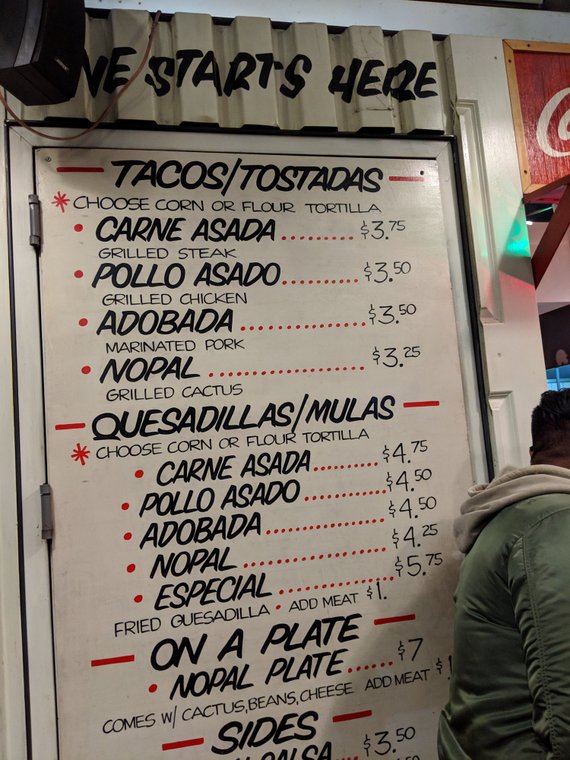 STARTS HERE
TACOS/TOSTADAS
* CHOOSE CORN OR FLOUR TORTILLA
• CARNE ASADA .............. $3.75
GRILLED STEAK
• POLLO ASADO .............. $3.50
GRILLED CHICKEN
• ADOBADA .............. $3.50
MARINATED PORK
• NOPAL .............. $3.25
GRILLED CACTUS
QUESADILLAS/MULAS
* CHOOSE CORN OR FLOUR TORTILLA
• CARNE ASADA .............. $4.75
• POLLO ASADO .............. $4.50
• ADOBADA .............. $4.50
• NOPAL .............. $4.25
• ESPECIAL .............. $5.75
FRIED QUESADILLA • ADD MEAT $1.
ON A PLATE
• NOPAL PLATE ...... $7
COMES W/ CACTUS, BEANS, CHEESE ADD MEAT $1
SIDES
SALSA $3.50